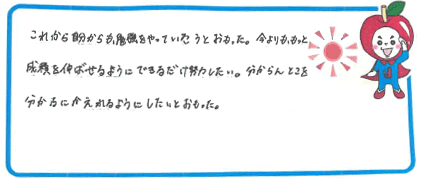 これから自分からも勉強をやっていこうとおもった。今よりも、もっと
成績を伸ばせるようにできるだけ努力したい。分からんところを
分かるにかえれるようにしたいとおもった。